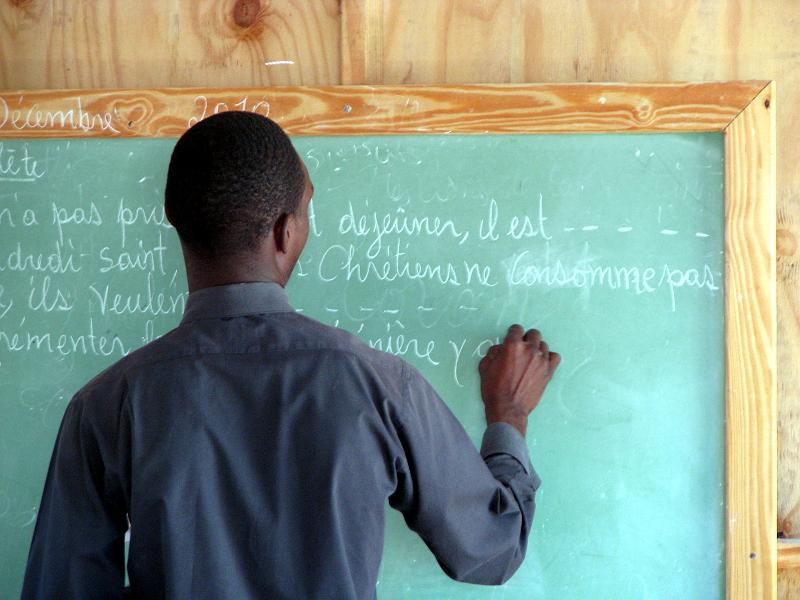 Décembre 2010
n'a pas pris déjeûner, il est -- - - - -
ndredi-saint, Chrétiens ne Consomme pas
, ils veulent - - - - -
rémenter nière y a